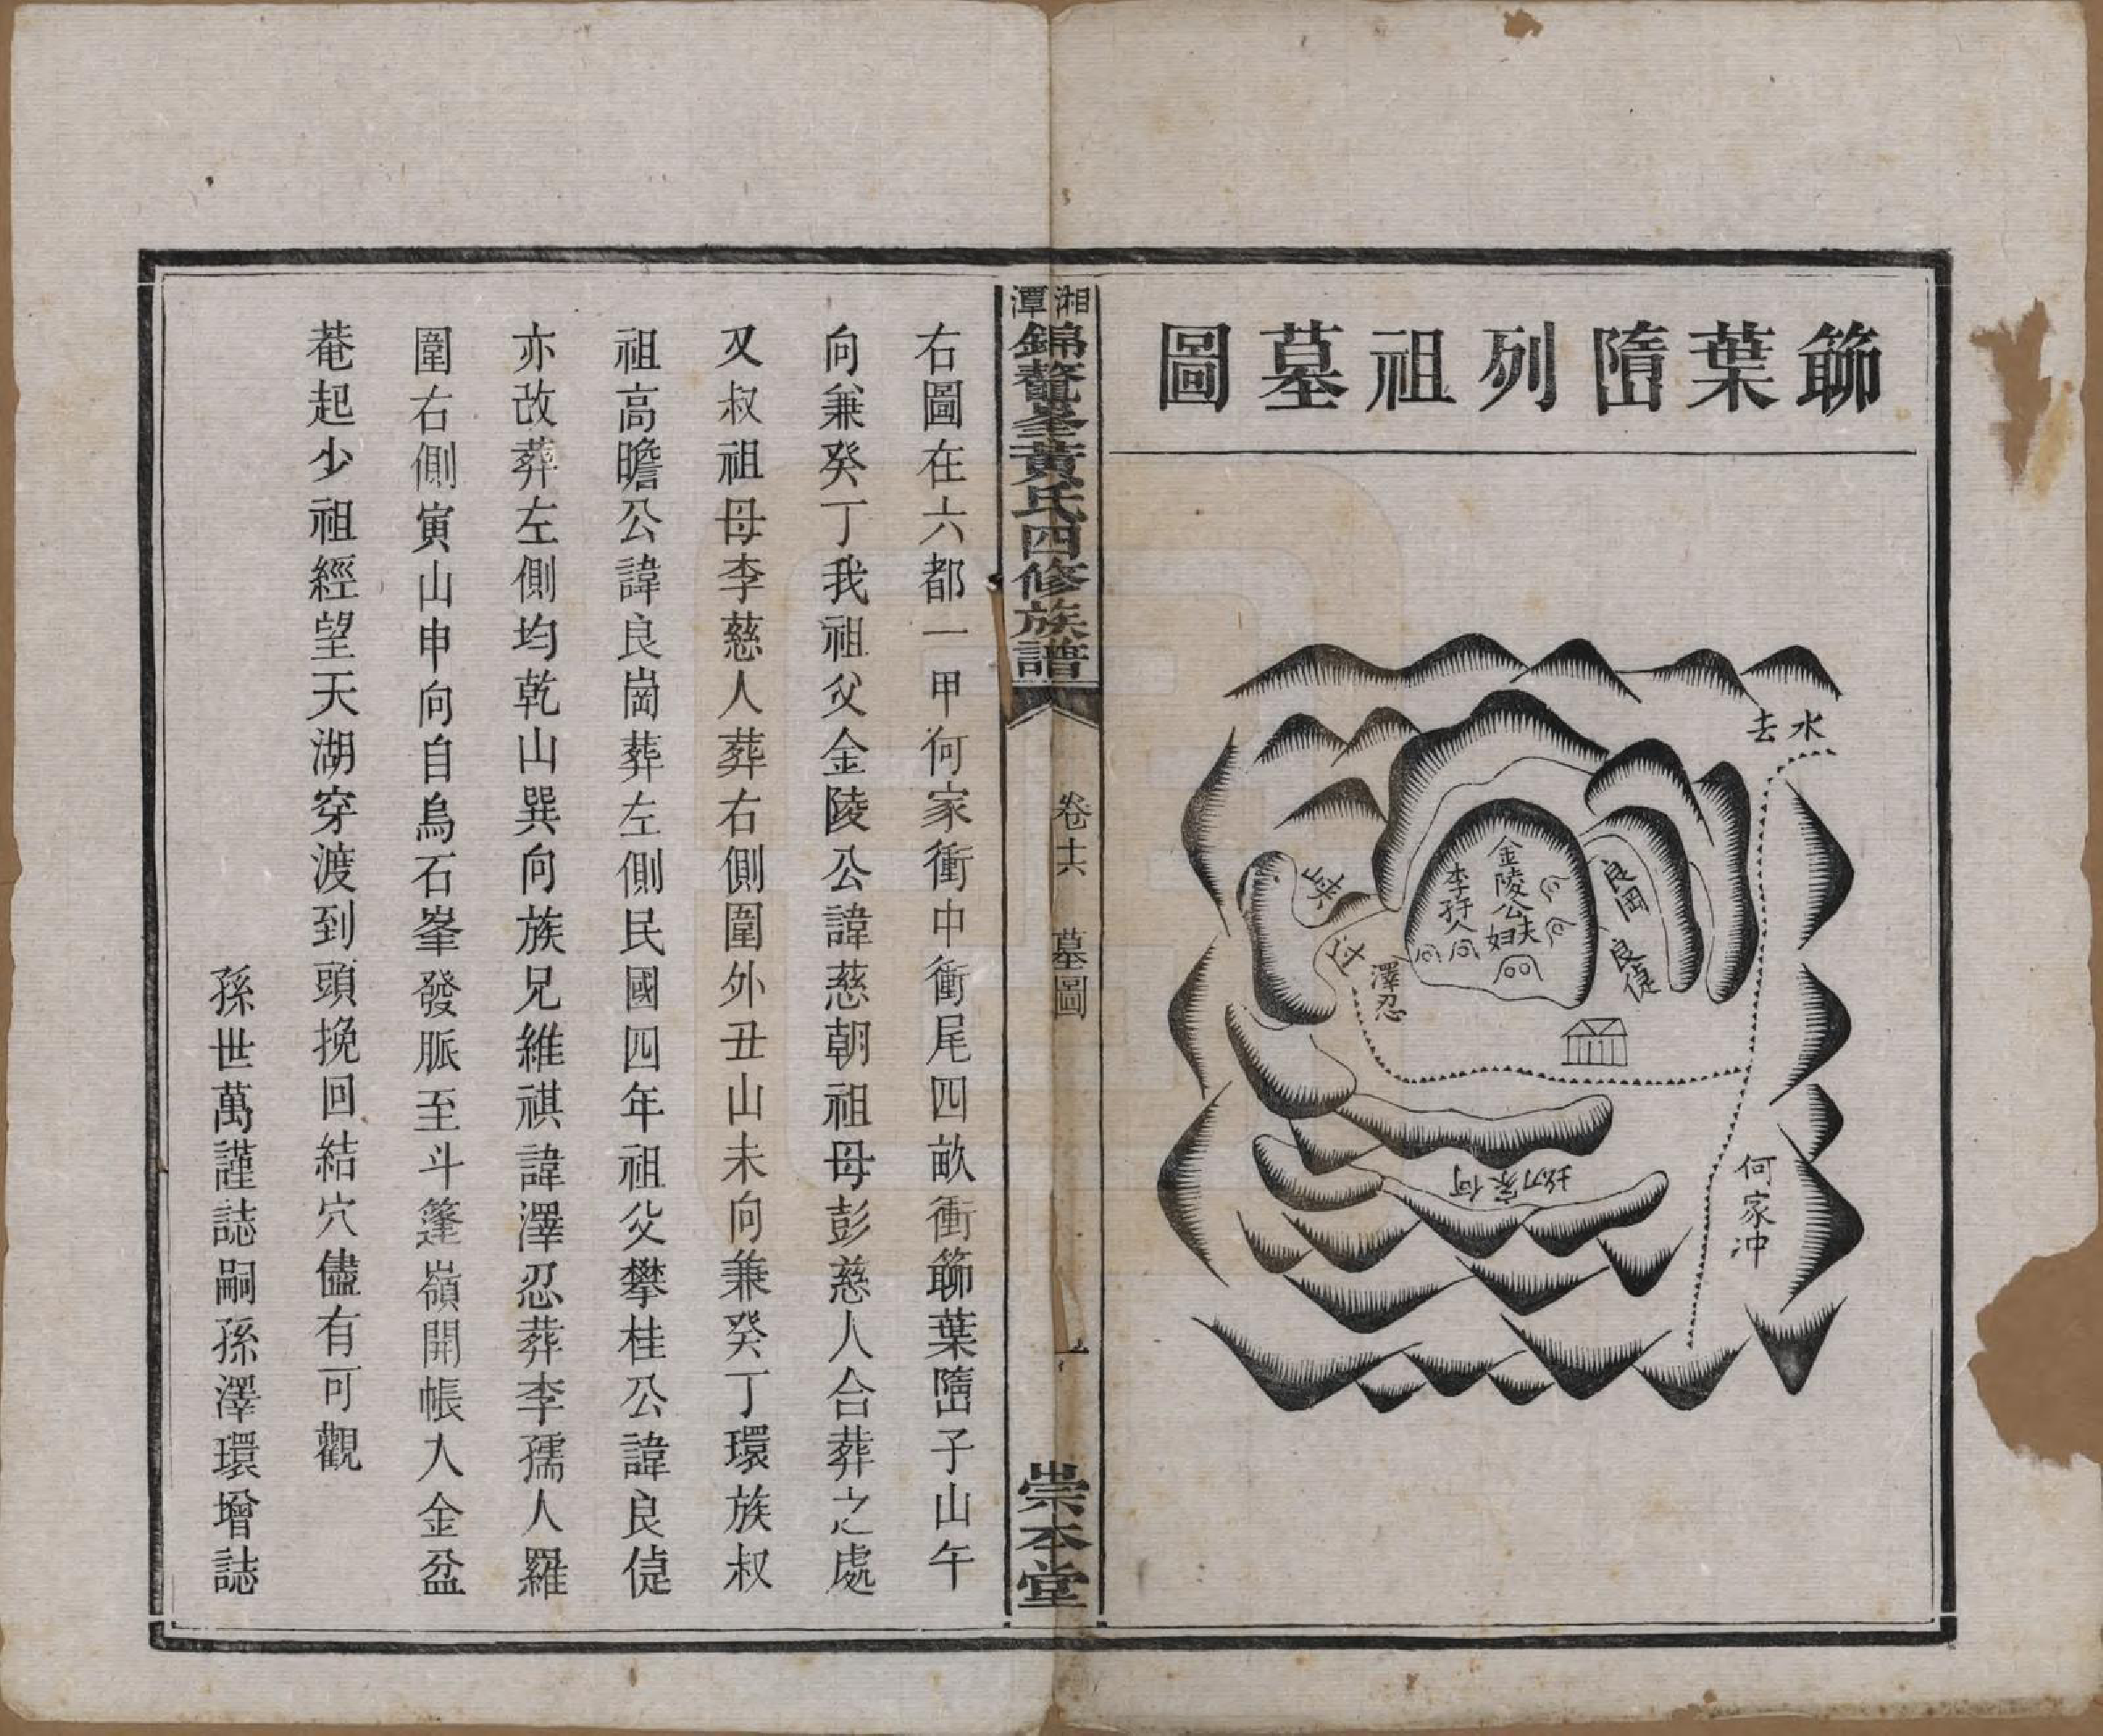 篰葉墮列祖墓圖
水去
金陵公夫妇
李孺人
良岡
良偍
峽
过
澤忍
何家坳
何家冲
湘潭錦鼇峯黃氏四修族譜
卷十六
墓圖
崇本堂
右圖在六都一甲何家衝中衝尾四畝衝篰葉墮子山午
向兼癸丁我祖父金陵公諱慈朝祖母彭慈人合葬之處
又叔祖母李慈人葬右側圍外丑山未向兼癸丁環族叔
祖高瞻公諱良崗葬左側民國四年祖父攀桂公諱良偍
亦改葬左側均乾山巽向族兄維祺諱澤忍葬李孺人羅
圍右側寅山申向自烏石峯發脈至斗篷嶺開帳入金盆
菴起少祖經望天湖穿渡到頭挽回結穴儘有可觀
孫世萬謹誌嗣孫澤環增誌